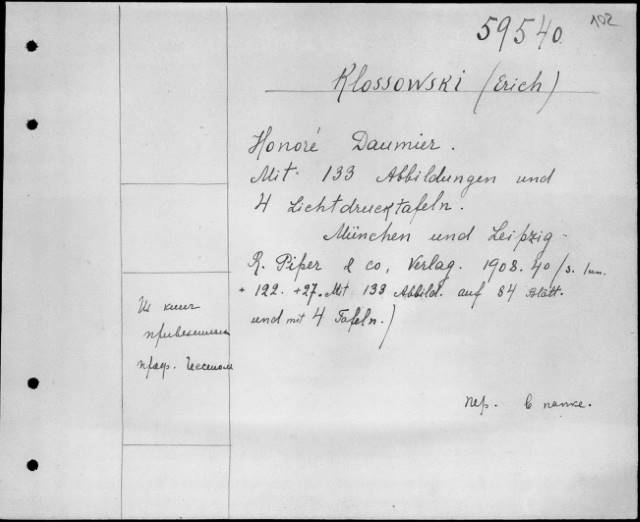 59540. 102
Klossowski (Erich)
Honoré Daumier.
Mit 133 Abbildungen und
4 Lichtdrucktafeln.
München und Leipzig.
R. Piper & co, Verlag. 1908. 4o/S. 1 нн.
+ 122. +27. Mit 133 Abbild. auf 84 Blätt.
und mit 4 Tafeln.)
Из книг
привезенных
проф.
пер. в папке.